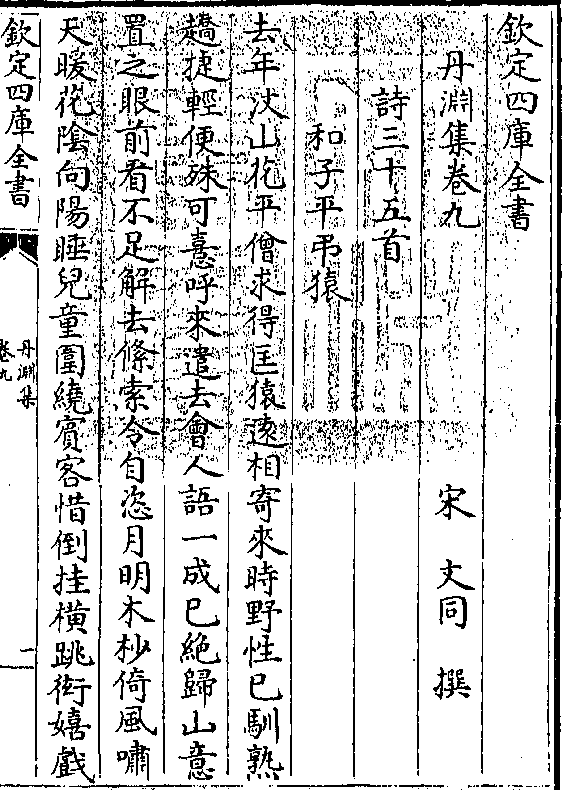 欽定四庫全書
丹淵集卷九
宋 文同 撰
詩三十五首
和子平弔猿
去年汶山花平僧求得匡猿遠相寄來時野性已馴熟
趫捷輕便殊可憙呼來遣去會人語一成已絶歸山意
置之眼前看不足解去絛索令自恣月明木杪倚風嘯
天暖花隂向陽睡兒童圍繞賔客惜倒挂横跳衒嬉戲
欽定四庫全書
丹淵集
卷九
一